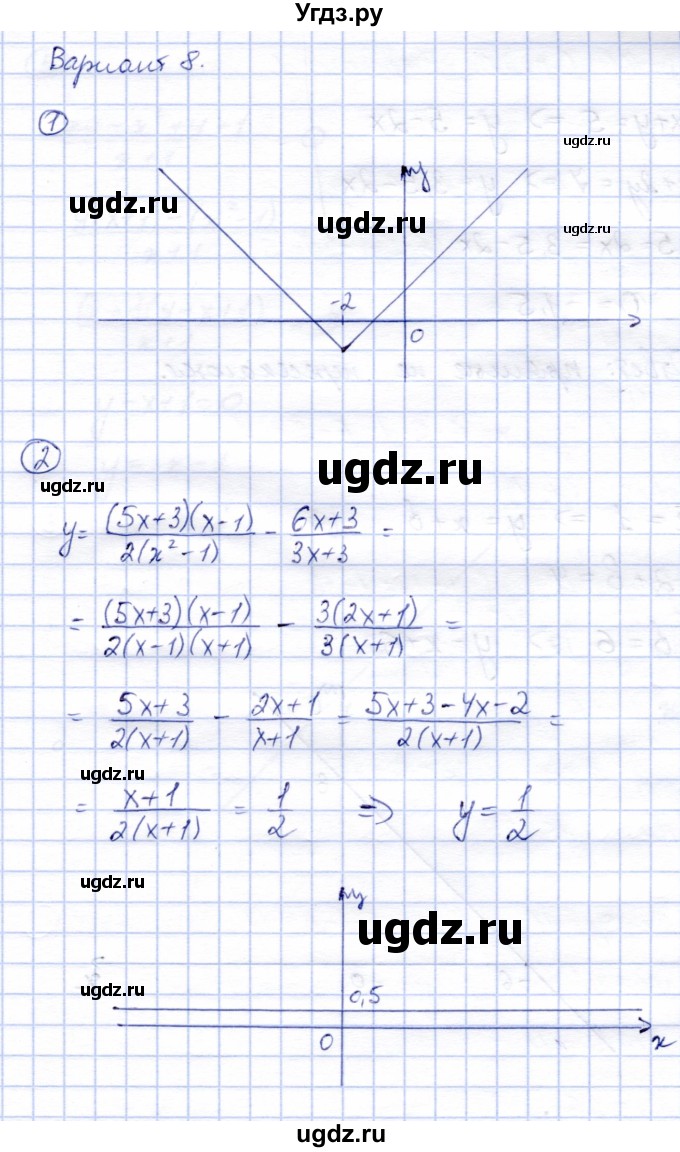 Угдз.ру
Вариант 8.
1
ugdz.ru
ugdz.ru
ugdz.ru
ugdz.ru
y
-2
0
2
ugdz.ru
ugdz.ru
y = (5x+3)(x-1)/2(x²-1) - 6x+3/3x+3 =
= (5x+3)(x-1)/2(x-1)(x+1) - 3(2x+1)/3(x+1) =
= 5x+3/2(x+1) - 2x+1/x+1 = 5x+3-4x-2/2(x+1) =
ugdz.ru
= x+1/2(x+1) = 1/2 => y = 1/2
ugdz.ru
y
ugdz.ru
ugdz.ru
0,5
0
x
ugdz.ru